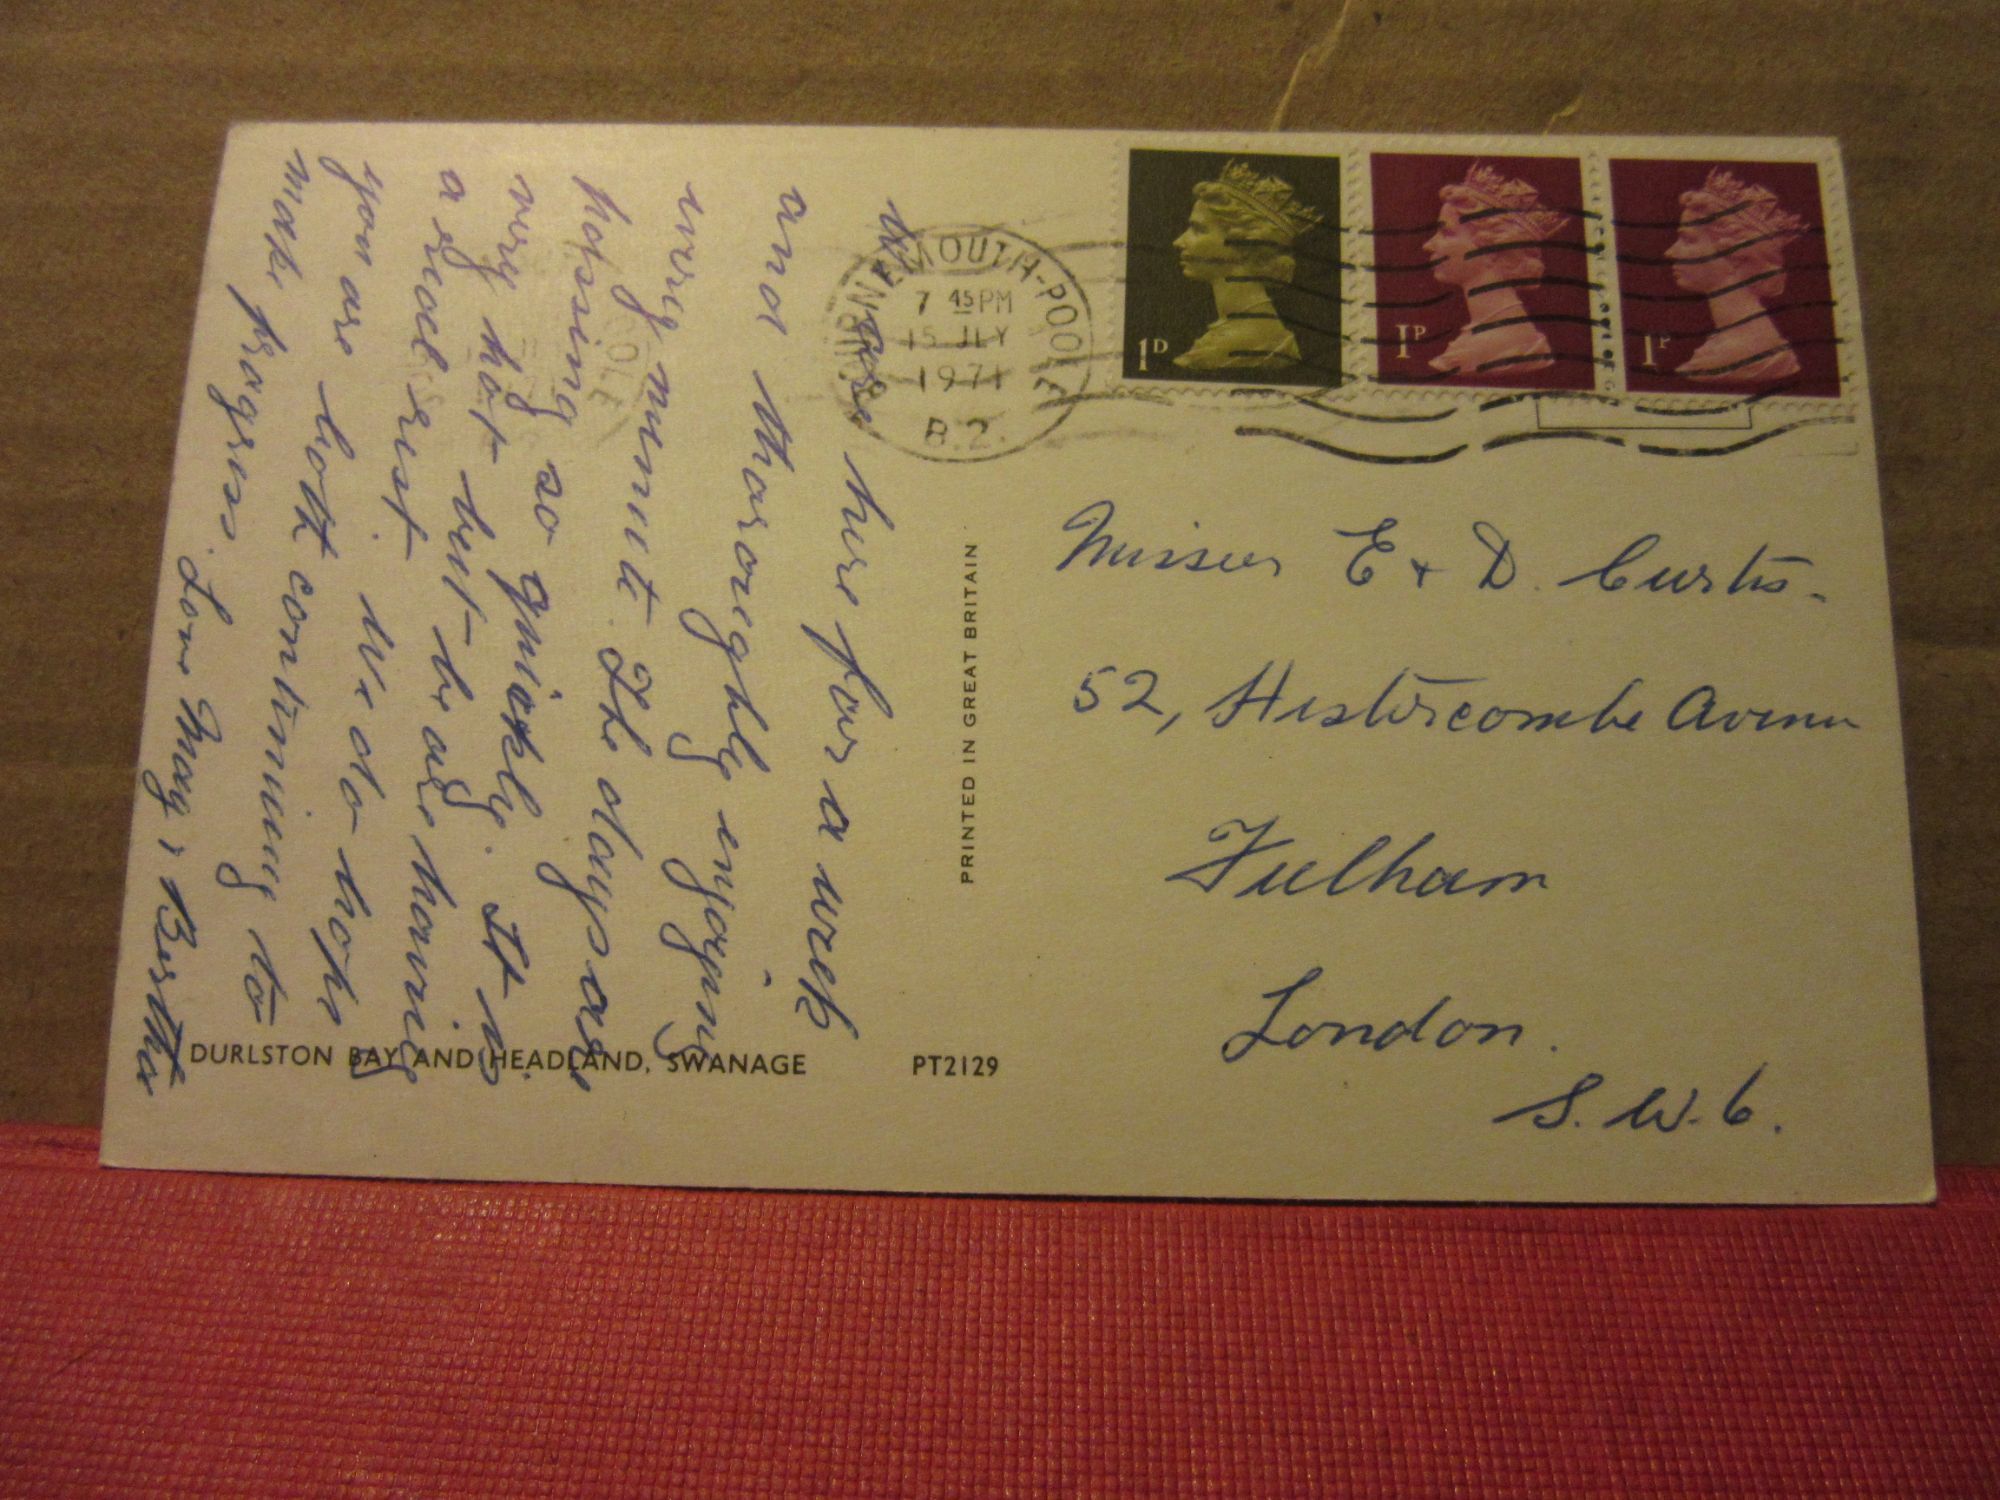 We are here for a week
and thoroughly enjoying
every minute. The days are
passing so quickly. It is
very hot but be are having
a good rest. We do hope
you are both continuing to
make progress. Love May & Bertha
BOURNEMOUTH-POOLE
7 45 PM
15 JLY
1971
B.2.
1D
1P
1P
Misses E + D. Curtis.
52, Hestercombe Avenue
Fulham
London.
S.W.6.
PRINTED IN GREAT BRITAIN
DURLSTON BAY AND HEADLAND, SWANAGE PT2129